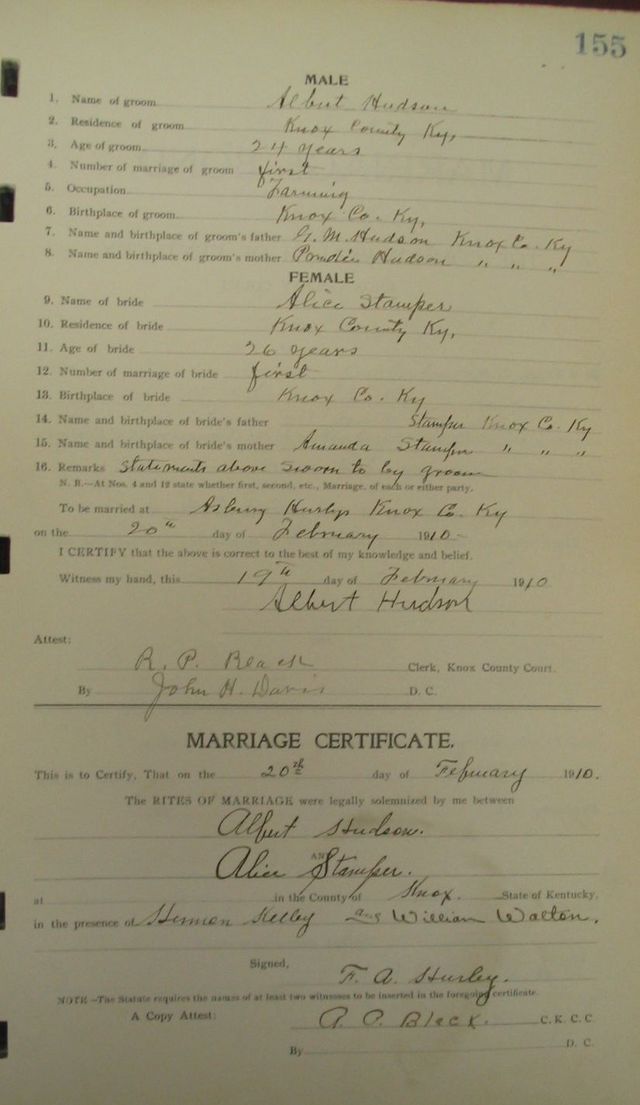 155
MALE
1. Name of groom Albert Hudson
2. Residence of groom Knox County Ky,
3. Age of groom 24 years
4. Number of marriage of groom first
5. Occupation Farming
6. Birthplace of groom Knox Co. Ky,
7. Name and birthplace of groom's father G. M. Hudson Knox Co. Ky
8. Name and birthplace of groom's mother Hudson " " "
FEMALE
9. Name of bride Alice Stamper
10. Residence of bride Knox County Ky,
11. Age of bride 26 years
12. Number of marriage of bride first
13. Birthplace of bride Knox Co. Ky
14. Name and birthplace of bride's father Stamper Knox Co. Ky
15. Name and birthplace of bride's mother Amanda Stamper " " "
16. Remarks Statements above sworn to by groom
N. B.—At Nos. 4 and 12 state whether first, second, etc., Marriage, of each or either party.
To be married at Asbury Knox Co. Ky
on the 20th day of February 1910-
I CERTIFY that the above is correct to the best of my knowledge and belief.
Witness my hand, this 19th day of February 1910
Albert Hudson
Attest:
R. P. Black Clerk, Knox County Court.
By John H. Davis D. C.
MARRIAGE CERTIFICATE.
This is to Certify, That on the 20th day of February 1910.
The RITES OF MARRIAGE were legally solemnized by me between
Albert Hudson.
AND
Alice Stamper.
at in the County of Knox. State of Kentucky,
in the presence of Hermon Kelley and William Walton.
Signed,
F. A. Hurley.
NOTE—The Statute requires the names of at least two witnesses to be inserted in the foregoing certificate.
A Copy Attest: Black. C. K. C. C.
By D. C.